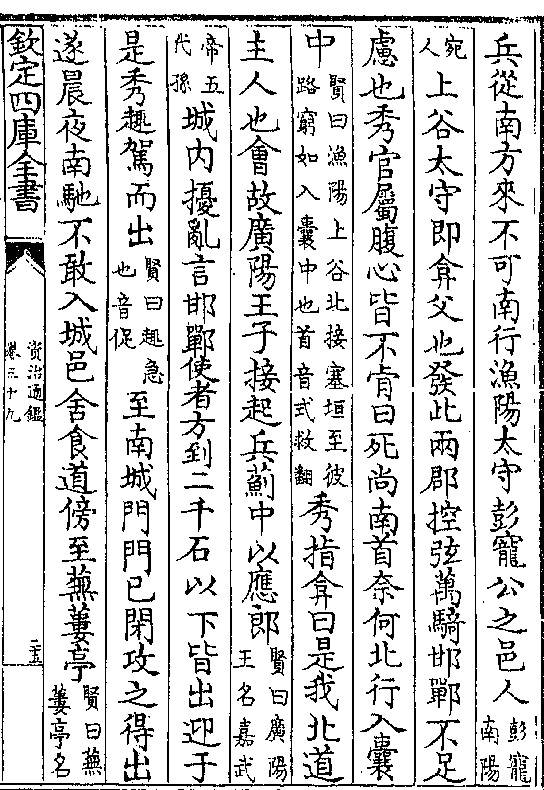 兵從南方來不可南行漁陽太守彭寵公之邑人彭寵南陽
宛人上谷太守即弇父也發此兩郡控弦萬騎邯鄲不足
慮也秀官屬腹心皆不肯曰死尚南首奈何北行入囊
中賢曰漁陽上谷北接塞垣至彼路窮如入囊中也首音式救翻秀指弇曰是我北道
主人也會故廣陽王子接起兵薊中以應郎賢曰廣陽王名嘉武
帝五代孫城内擾亂言邯鄲使者方到二千石以下皆出迎于
是秀趣駕而出賢曰趣急也音促至南城門門已閉攻之得出
遂晨夜南馳不敢入城邑舍食道傍至蕪蔞亭賢曰蕪蔞亭名
欽定四庫全書
資治通鑑
卷三十九
二十五